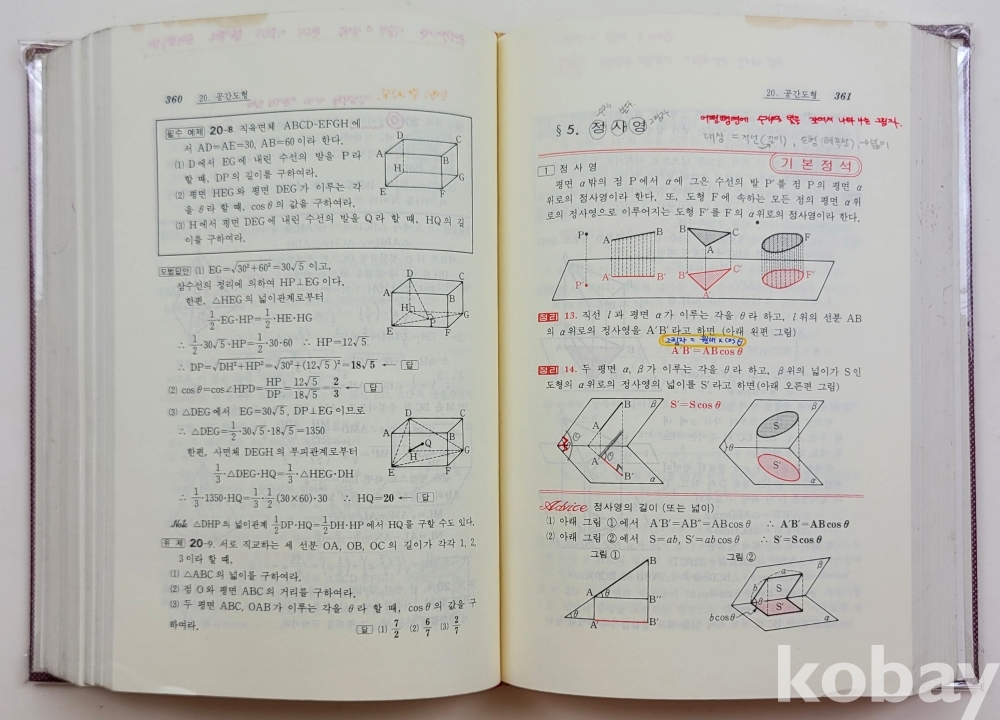 360 20. 공간도형
필수 예제 20-8 직육면체 ABCD-EFGH에
서 AD=AE=30, AB=60이라 한다.
(1) D에서 EG에 내린 수선의 발을 P라
할 때, DP의 길이를 구하여라.
(2) 평면 HEG와 평면 DEG가 이루는 각
을 θ라 할 때, cosθ의 값을 구하여라.
(3) H에서 평면 DEG에 내린 수선의 발을 Q라 할 때, HQ의 길
이를 구하여라.
D C
A B
H G
E F
모범답안 (1) EG=√30²+60²=30√5 이고,
삼수선의 정리에 의하여 HP⊥EG이다.
한편, △HEG의 넓이관계로부터
1/2·EG·HP=1/2·HE·HG
∴ 1/2·30√5·HP=1/2·30·60 ∴ HP=12√5
∴ DP=√DH²+HP²=√30²+(12√5)²=18√5 ← 답
D C
A B
H G
P
E F
(2) cosθ=cos∠HPD=HP/DP=12√5/18√5=2/3 ← 답
(3) △DEG에서 EG=30√5, DP⊥EG이므로
∴ △DEG=1/2·30√5·18√5=1350
한편, 사면체 DEGH의 부피관계로부터
1/3·△DEG·HQ=1/3·△HEG·DH
∴ 1/3·1350·HQ=1/3·1/2(30×60)·30 ∴ HQ=20 ← 답
D C
A B
Q
H G
E F
Note △DHP의 넓이관계 1/2DP·HQ=1/2DH·HP에서 HQ를 구할 수도 있다.
유제 20-9. 서로 직교하는 세 선분 OA, OB, OC의 길이가 각각 1, 2,
3이라 할 때,
(1) △ABC의 넓이를 구하여라.
(2) 점 O와 평면 ABC의 거리를 구하여라.
(3) 두 평면 ABC, OAB가 이루는 각을 θ라 할 때, cosθ의 값을 구
하여라.
답 (1) 7/2 (2) 6/7 (3) 2/7
20. 공간도형 361
§5. 정사영
기본정석
1 정사영
평면 α밖의 점 P에서 α에 그은 수선의 발 P′를 점 P의 평면 α
위로의 정사영이라 한다. 또, 도형 F에 속하는 모든 점의 평면 α위
로의 정사영으로 이루어지는 도형 F′를 F의 α위로의 정사영이라 한다.
P A B B C A F
P′ A′ B′ B′ C′ A′ F′
정리 13. 직선 l과 평면 α가 이루는 각을 θ라 하고, l위의 선분 AB
의 α위로의 정사영을 A′B′라고 하면 (아래 왼편 그림)
그림자 = 원래 × cosθ
A′B′=ABcosθ
정리 14. 두 평면 α, β가 이루는 각을 θ라 하고, β위의 넓이가 S인
도형의 α위로의 정사영의 넓이를 S′라고 하면(아래 오른편 그림)
S′=Scosθ
B β
A
A′ θ B′
α
β
S
θ
S′
α
Advice 정사영의 길이 (또는 넓이)
(1) 아래 그림 ①에서 A′B′=AB″=ABcosθ ∴ A′B′=ABcosθ
(2) 아래 그림 ②에서 S=ab, S′=abcosθ ∴ S′=Scosθ
그림 ① 그림 ②
B
A θ B″
θ A′ B′
a β
b S
θ S′
bcosθ α
kobay